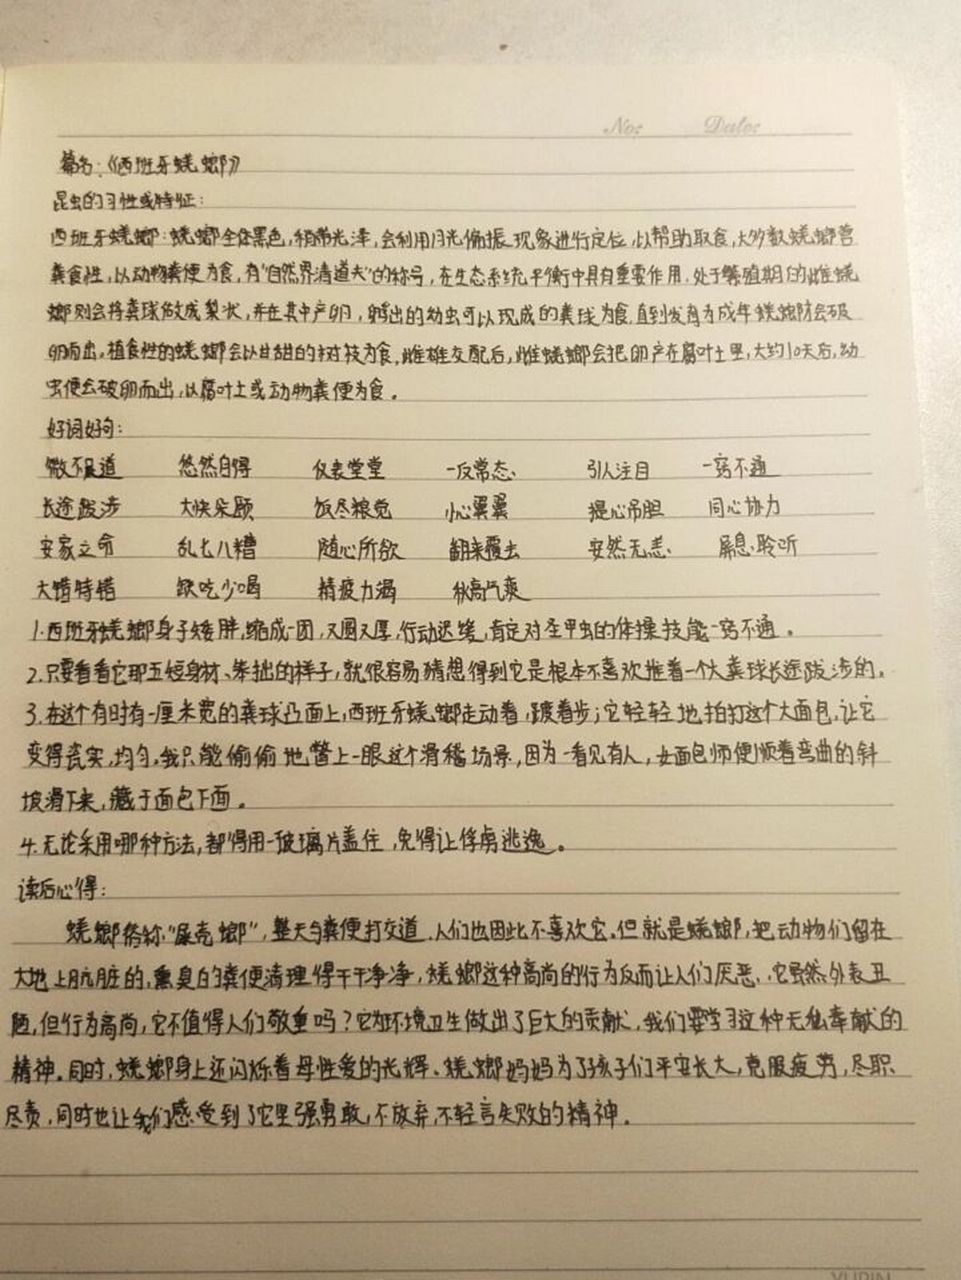 No: Date:
篇名:《西班牙蜣螂》
昆虫的习性或特征:
西班牙蜣螂:蜣螂全体黑色,稍带光泽,会利用月光偏振现象进行定位,以帮助取食,大多数蜣螂营
粪食性,以动物粪便为食,有"自然界清道夫"的称号,在生态系统平衡中具有重要作用.处于繁殖期的雌蜣
螂则会将粪球做成梨状,并在其中产卵,孵出的幼虫可以现成的粪球为食,直到发育为成年蜣螂才会破
卵而出,植食性的蜣螂会以甘甜的树枝为食,雌雄交配后,雌蜣螂会把卵产在腐叶土里,大约10天后,幼
虫便会破卵而出,以腐叶土或动物粪便为食。
好词好句:
微不足道 悠然自得 仪表堂堂 一反常态、 引人注目 一窍不通
长途跋涉 大快朵颐 饭尽粮绝 小心翼翼 提心吊胆 同心协力
安家立命 乱七八糟 随心所欲 翻来覆去 安然无恙、 屏息聆听
大错特错 缺吃少喝 精疲力竭 秋高气爽
1.西班牙蜣螂身子矮胖,缩成一团,又圆又厚,行动迟缓,肯定对圣甲虫的体操技能一窍不通。
2.只要看看它那五短身材、笨拙的样子,就很容易猜想得到它是根本不喜欢推着一个大粪球长途跋涉的。
3.在这个有时有一厘米宽的粪球凸面上,西班牙蜣螂走动着,踱着步;它轻轻地拍打这个大面包,让它
变得瓷实,均匀.我只能偷偷地瞥上一眼这个滑稽场景,因为一看见有人,女面包师便顺着弯曲的斜
坡滑下来,藏于面包下面。
4.无论采用哪种方法,都得用一玻璃片盖住,免得让俘虏逃逸。
读后心得:
蜣螂俗称"屎壳螂",整天与粪便打交道.人们也因此不喜欢它.但就是蜣螂,把动物们留在
大地上肮脏的,熏臭的粪便清理得干干净净,蜣螂这种高尚的行为反而让人们厌恶.它虽然外表丑
陋,但行为高尚,它不值得人们敬重吗?它为环境卫生做出了巨大的贡献,我们要学习这种无私奉献的
精神.同时,蜣螂身上还闪烁着母性爱的光辉、蜣螂妈妈为了孩子们平安长大,克服疲劳,尽职、
尽责,同时也让我们感受到了它坚强勇敢,不放弃,不轻言失败的精神.
YURIN